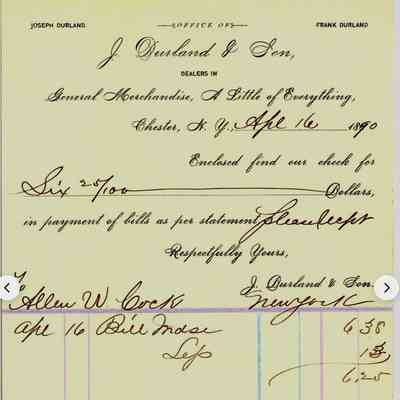 JOSEPH DURLAND. OFFICE OF FRANK DURLAND
J. Durland & Son,
DEALERS IN
General Merchandise, A Little of Everything,
Chester, N. Y., Apl 16 1890
Enclosed find our check for
Six 25/100 Dollars,
in payment of bills as per statement
Respectfully Yours,
J. Durland & Son.
To
Allen W Cock New York
Apl 16 Bill Mdse 6 38
13
6,25